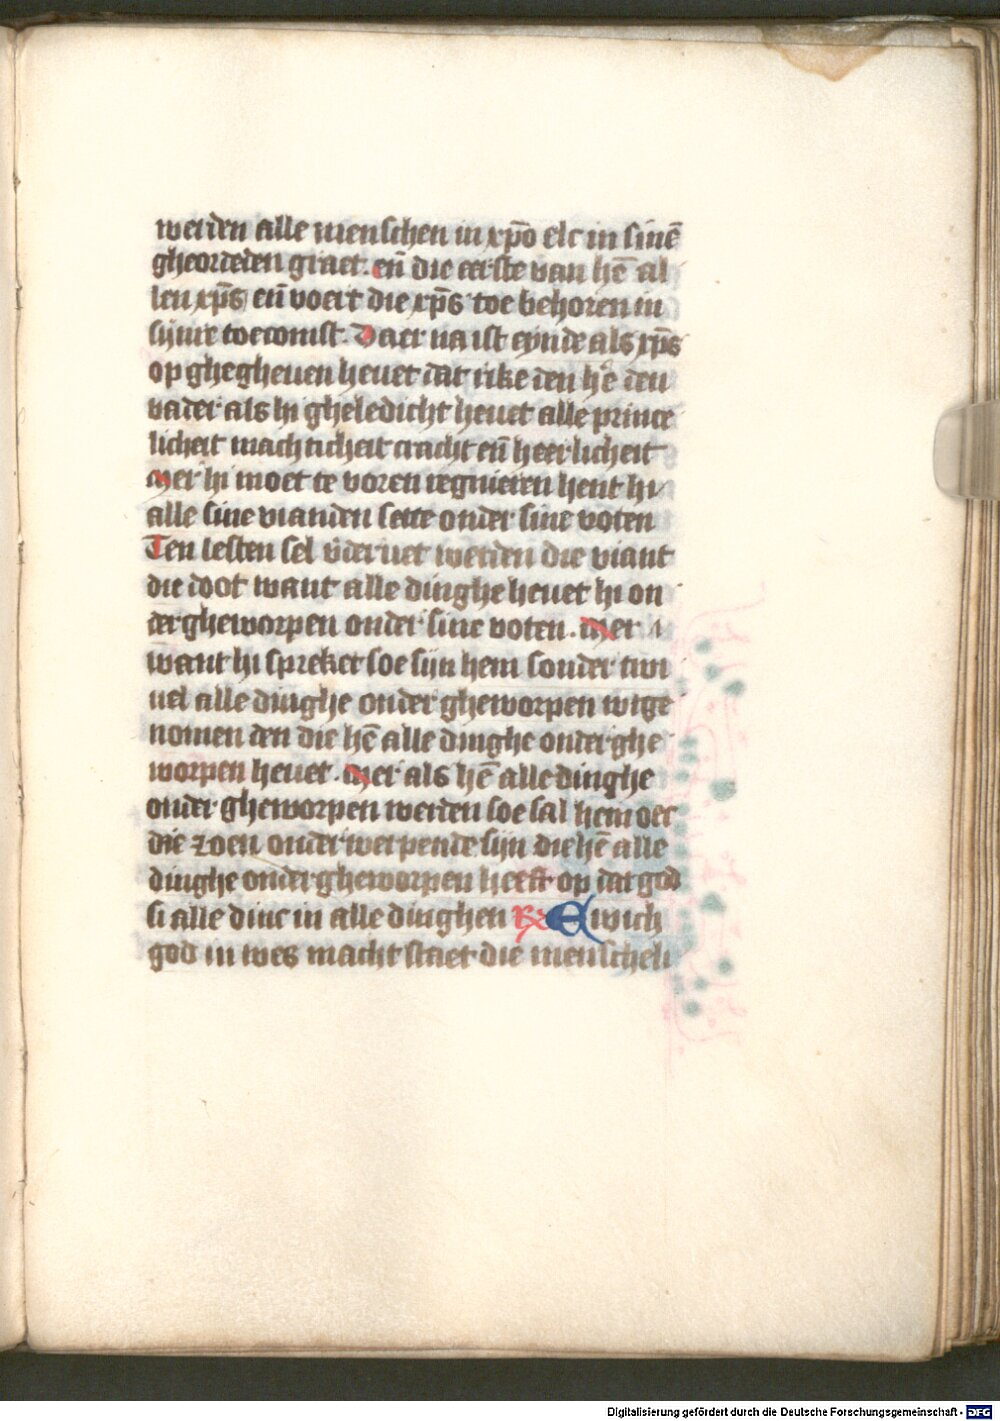 werden alle menschen in xp̄o elc in sinē
gheordeden graet. eñ die eerste van hē al
len xp̄s eñ voert die xp̄s toe behoren in
sijnre toecomst. Daer na ist eynde als xp̄s
op ghegheuen heuet dat rike den hē den
vader als hi gheledicht heuet alle prince
licheit machticheit cracht eñ heerlicheit
Mer hi moet te voren regnieren hent hi
alle sine vianden sette onder sine voten
Ten lesten sel v̄deruet werden die viant
die doot want alle dinghe heuet hi on
dergheworpen onder sine voten. Mer
want hi spreket soe sijn hem sonder twi
uel alle dinghe onder gheworpen wtge
nomen den die hē alle dinghe onderghe
worpen heuet. Mer als hē alle dinghe
onder gheworpen werden soe sal hem oec
die zoen onderwerpende sijn die hē alle
dinghe ondergheworpen heeft op dat god
si alle dinc in alle dinghen Rx Ewich
god in wes macht staet die menscheli
Digitalisierung gefördert durch die Deutsche Forschungsgemeinschaft - DFG